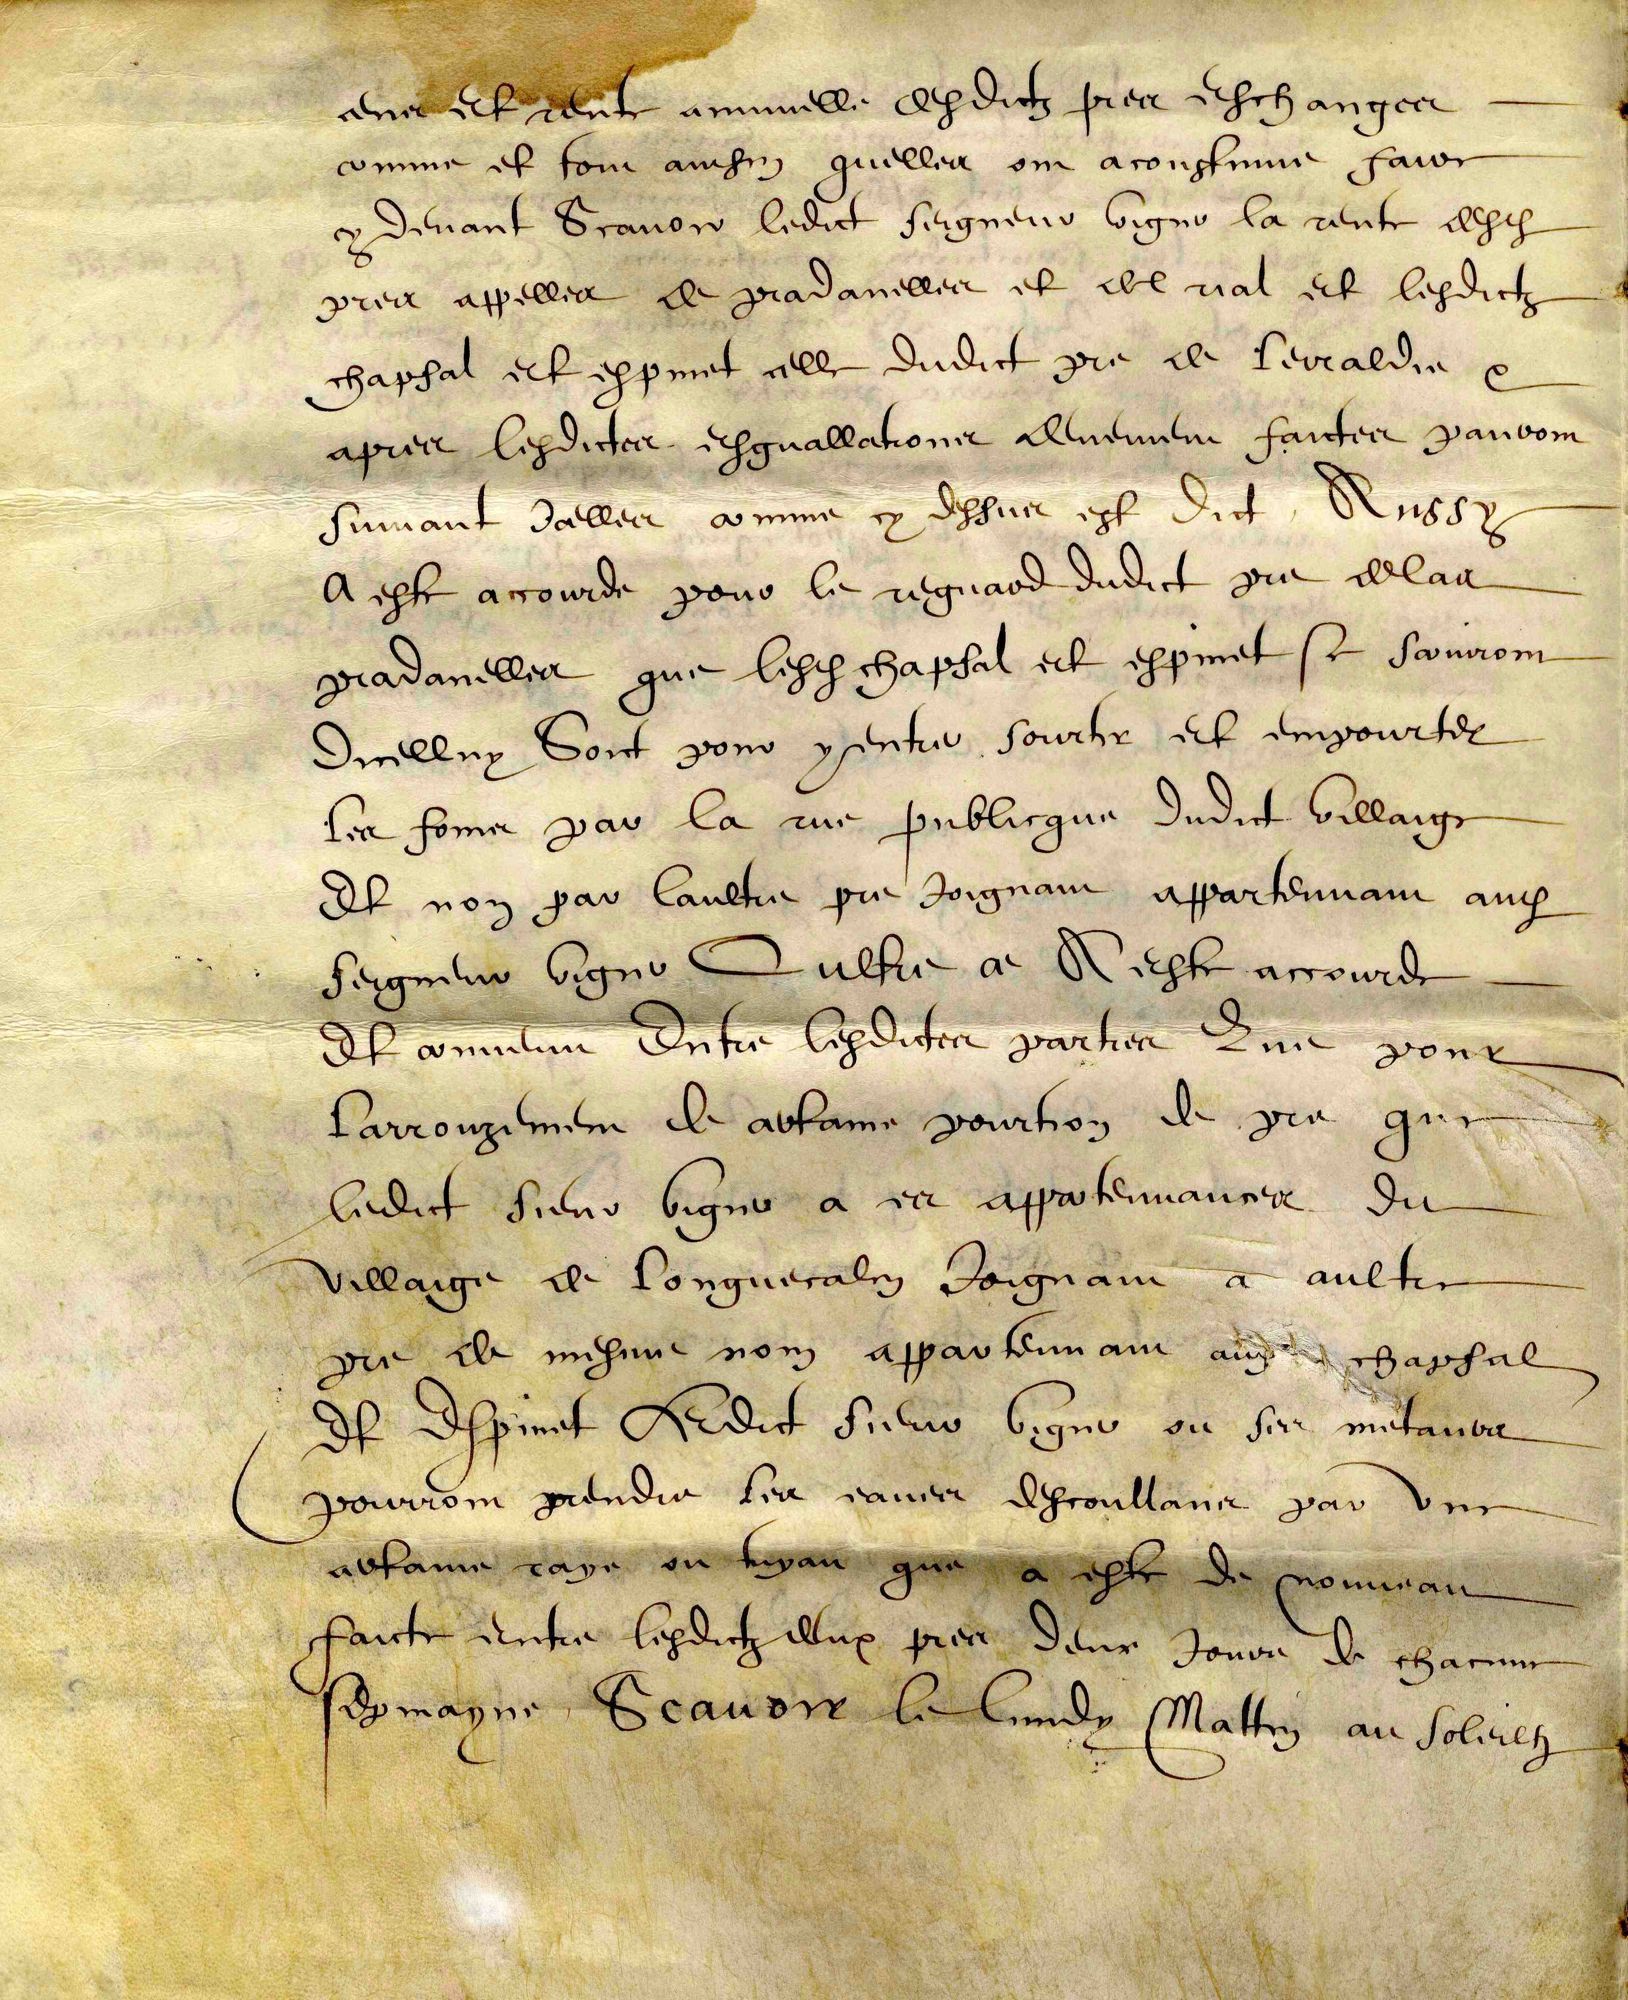 cens et rente annuelle desdictz prez eschangez
comme et tout ainsin quelles ont acoustumé faire
cy devant Scavoir ledict seigneur vigne la rente desd
prez appelles de pradanelles et del rial et lesdictz
chapsal et espinet celle dudict pre de leyraldie
apres lesdictes esguallations deuement faictes payront
suivant icelles comme cy dessus est dict Aussy
A este accourde pour le reguard dudict pre de las
pradanelles que lesd chapsal et espinet se serviront
dicelluy Soict pour y entrer sourtir et empourter
les foins par la rue publicque dudict villaige
Et non par laultre pre Joignant appartenant aud
seigneur vigne Oultre ce A este accourde
Et convenu Entre lesdictes parties Que pour
larrouzement de certaine pourtion de pre que
ledict sieur vigne a ez appartenances du
villaige de longuecalm Joignant a aultre
pre de mesme nom appartenant aud chapsal
Et Espinet Ledict sieur vigne ou ses metaiers
pourront prendre les eaues descoullans par une
certaine raye ou tuyau que a este de nouveau
faicte entre lesdictz deux prez deux Jours de chacune
sepmayne Scavoir le lundy Mattin au soleilh